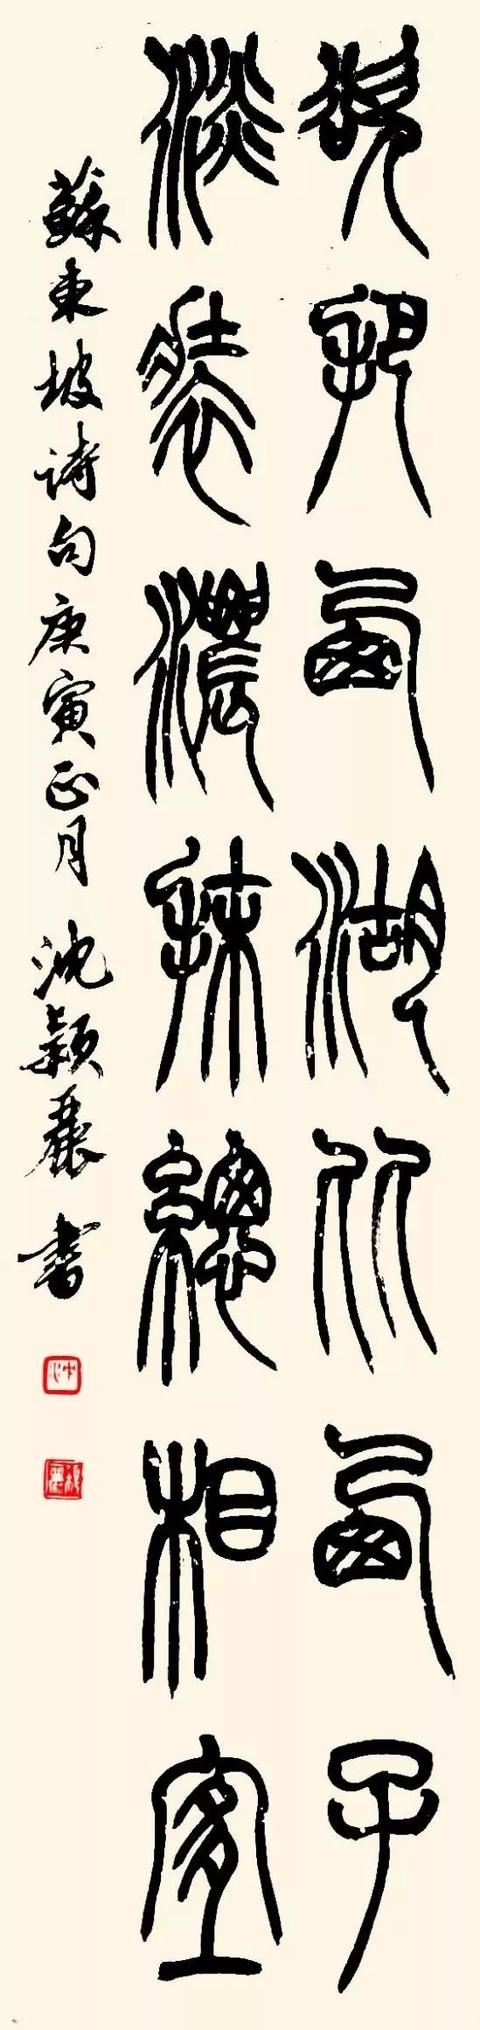 欲把西湖比西子
淡裝濃抹總相宜
蘇東坡诗句庚寅正月沈颖麗书